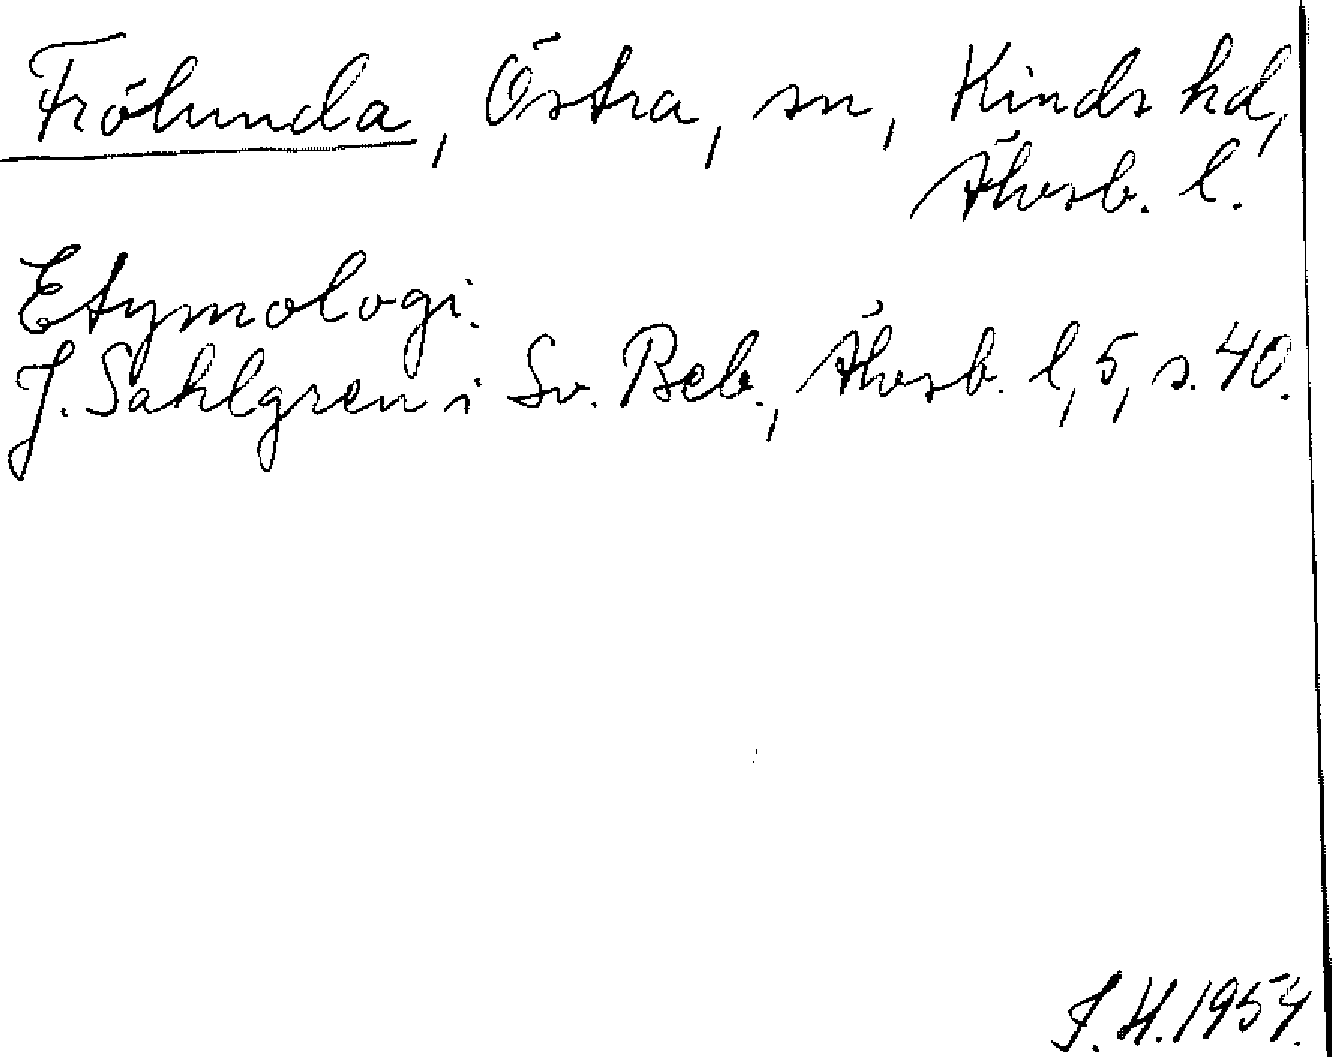 Frölunda, Östra, sn, Kinds hd,
Älvsb. l.
Etymologi.
J. Sahlgren i Sv. Beb., Älvsb. l, 5, s. 40.
J. H. 1954.